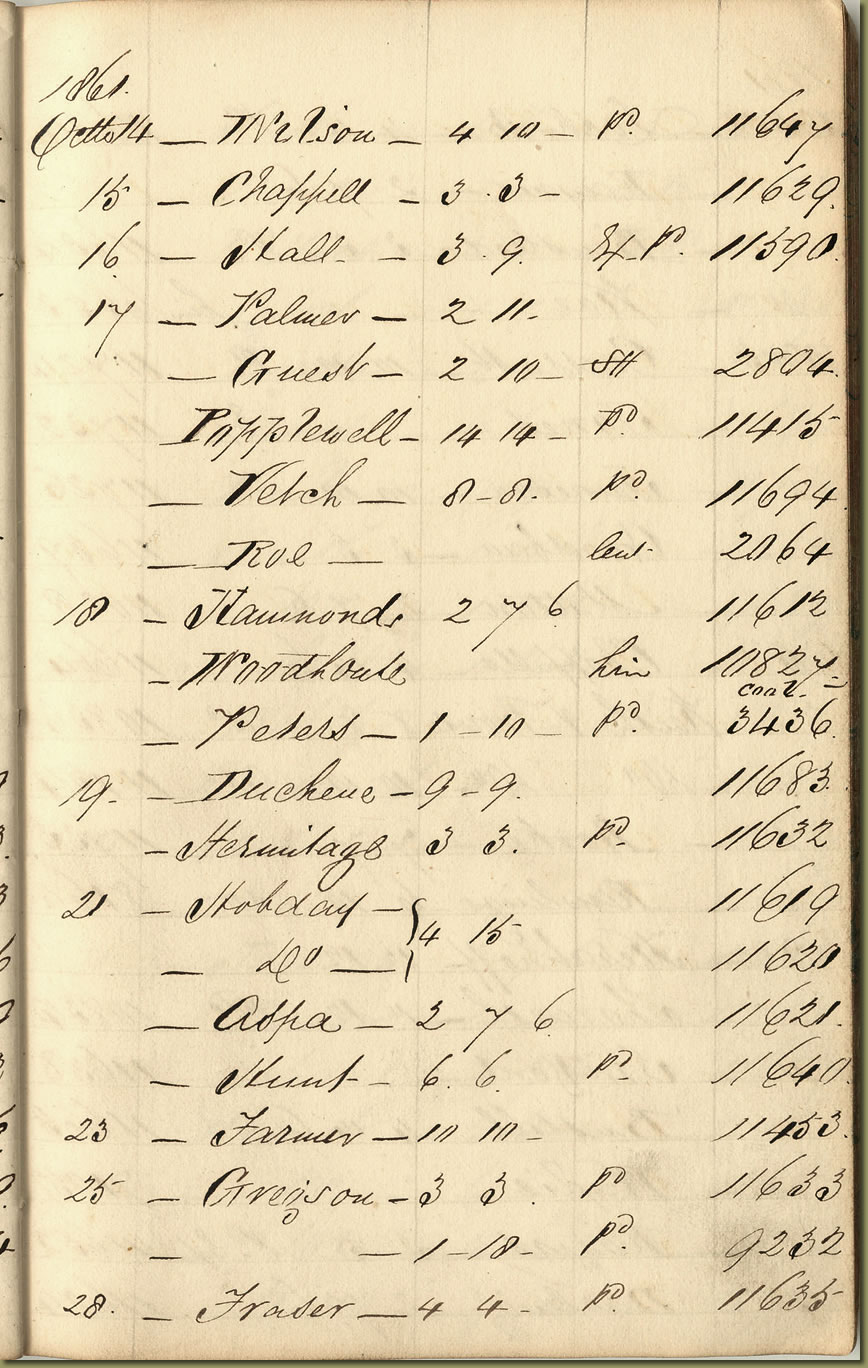 1861.
Octto 14 — Wilson — 4 10 — pd. 11647
15 — Chappell — 3 . 3 — 11629.
16 — Hall — 3 . 9. pd. 11590.
17 — Palmer — 2 11.
— Guest — 2 10 — 2804.
Popplewell — 14 14 — pd 11415
— Vetch — 8 - 8. pd. 11694.
— Roe — 2064
18 — Hammonds 2 7 6 11612
— Woodhouse 10827 =
— Peters — 1 - 10 — pd. 3436.
19. — Duchene — 9 - 9. 11683.
— Hermitage 3 3. pd. 11632
21 — Hobday — 11619
4 15
— Do — 11620
— Aspa — 2 7 6 11621.
— Hunt — 6. 6. pd. 11640.
23 — Farmer — 10 10 — 11453.
25 — Gregson — 3 3. pd 11633
— — 1 - 18 — pd. 9232
28. — Fraser — 4 4 — pd. 11635